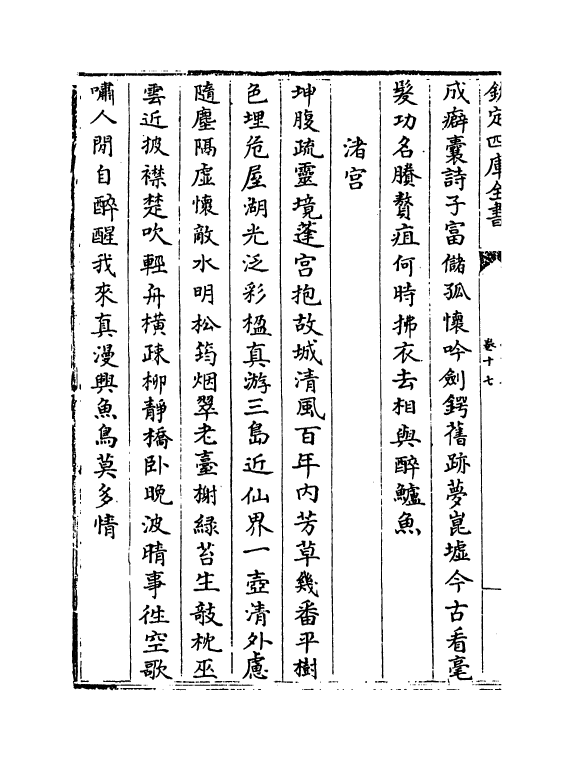 欽定四庫全書
卷十七
成癖囊詩子富儲孤懷吟劍鍔舊跡夢崑墟今古看毫
髮功名賸贅疽何時拂衣去相與醉鱸魚
渚宮
坤腹疏靈境蓬宮抱故城清風百年内芳草幾番平樹
色埋危屋湖光泛彩楹真游三島近仙界一壺清外慮
隨塵隔虛懷敵水明松筠烟翠老臺榭緑苔生敧枕巫
雲近披襟楚吹輕舟橫疎柳靜橋卧晚波晴事徃空歌
嘯人閒自醉醒我來真漫興魚鳥莫多情